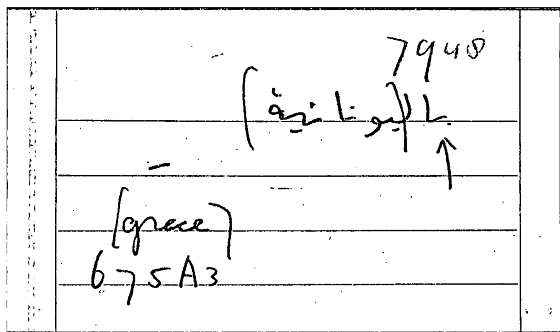 7948
(باليونانية)
(grece)
675A3